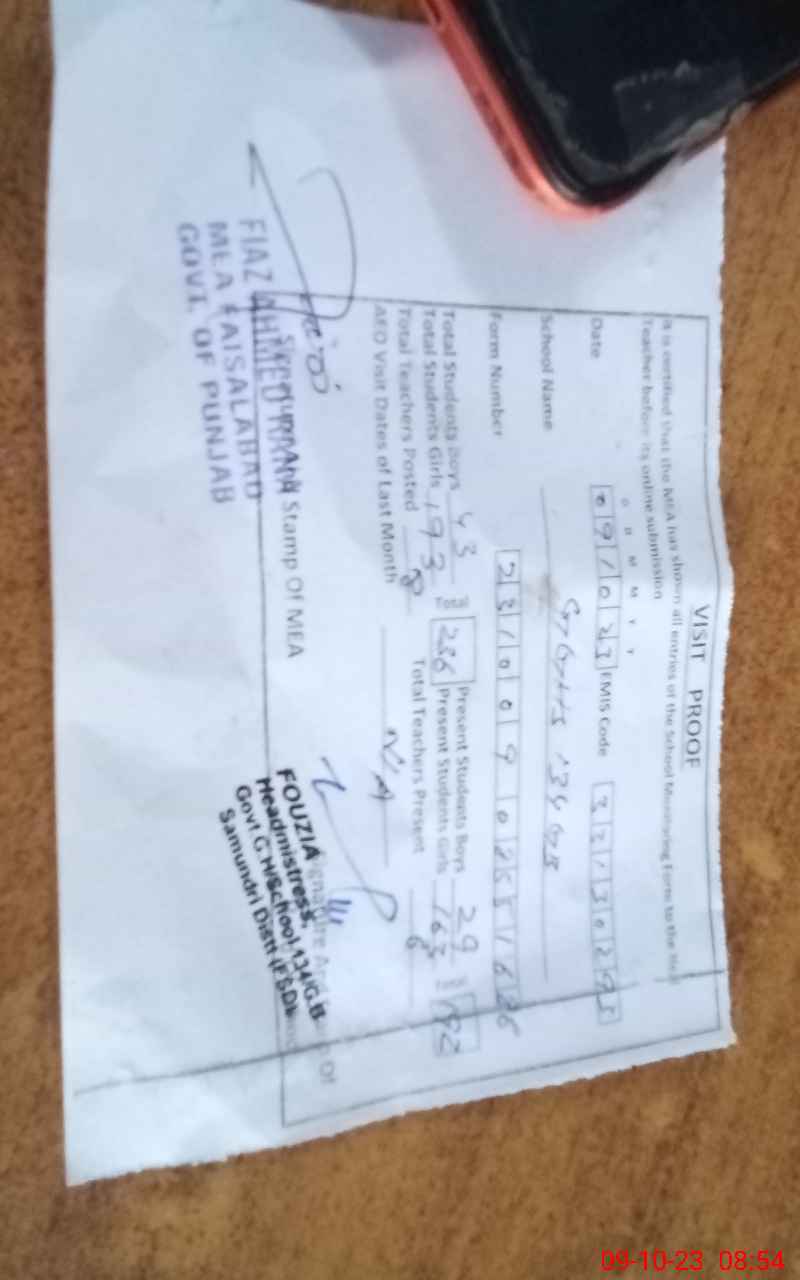 VISIT PROOF
It is certified that the MEA has shown all entries of the School Monitoring Form to the Head
Teacher before its online submission
D D M M Y Y
Date 091023 EMIS Code
School Name GGHS 134 GB
Form Number
Total Students Boys 43 Present Students Boys 29
Total Students Girls 193 Total 236 Present Students Girls 163 192
Total Teachers Posted 8 Total Teachers Present 6
AEO Visit Dates of Last Month N/A
Stamp Of MEA
FIAZ AHMED RANA
MEA FAISALABAD
GOVT. OF PUNJAB
FOUZIA
Headmistress,
Govt.G.H/School,134/G.B
Samundri Distt (FSD)
09-10-23 08:54